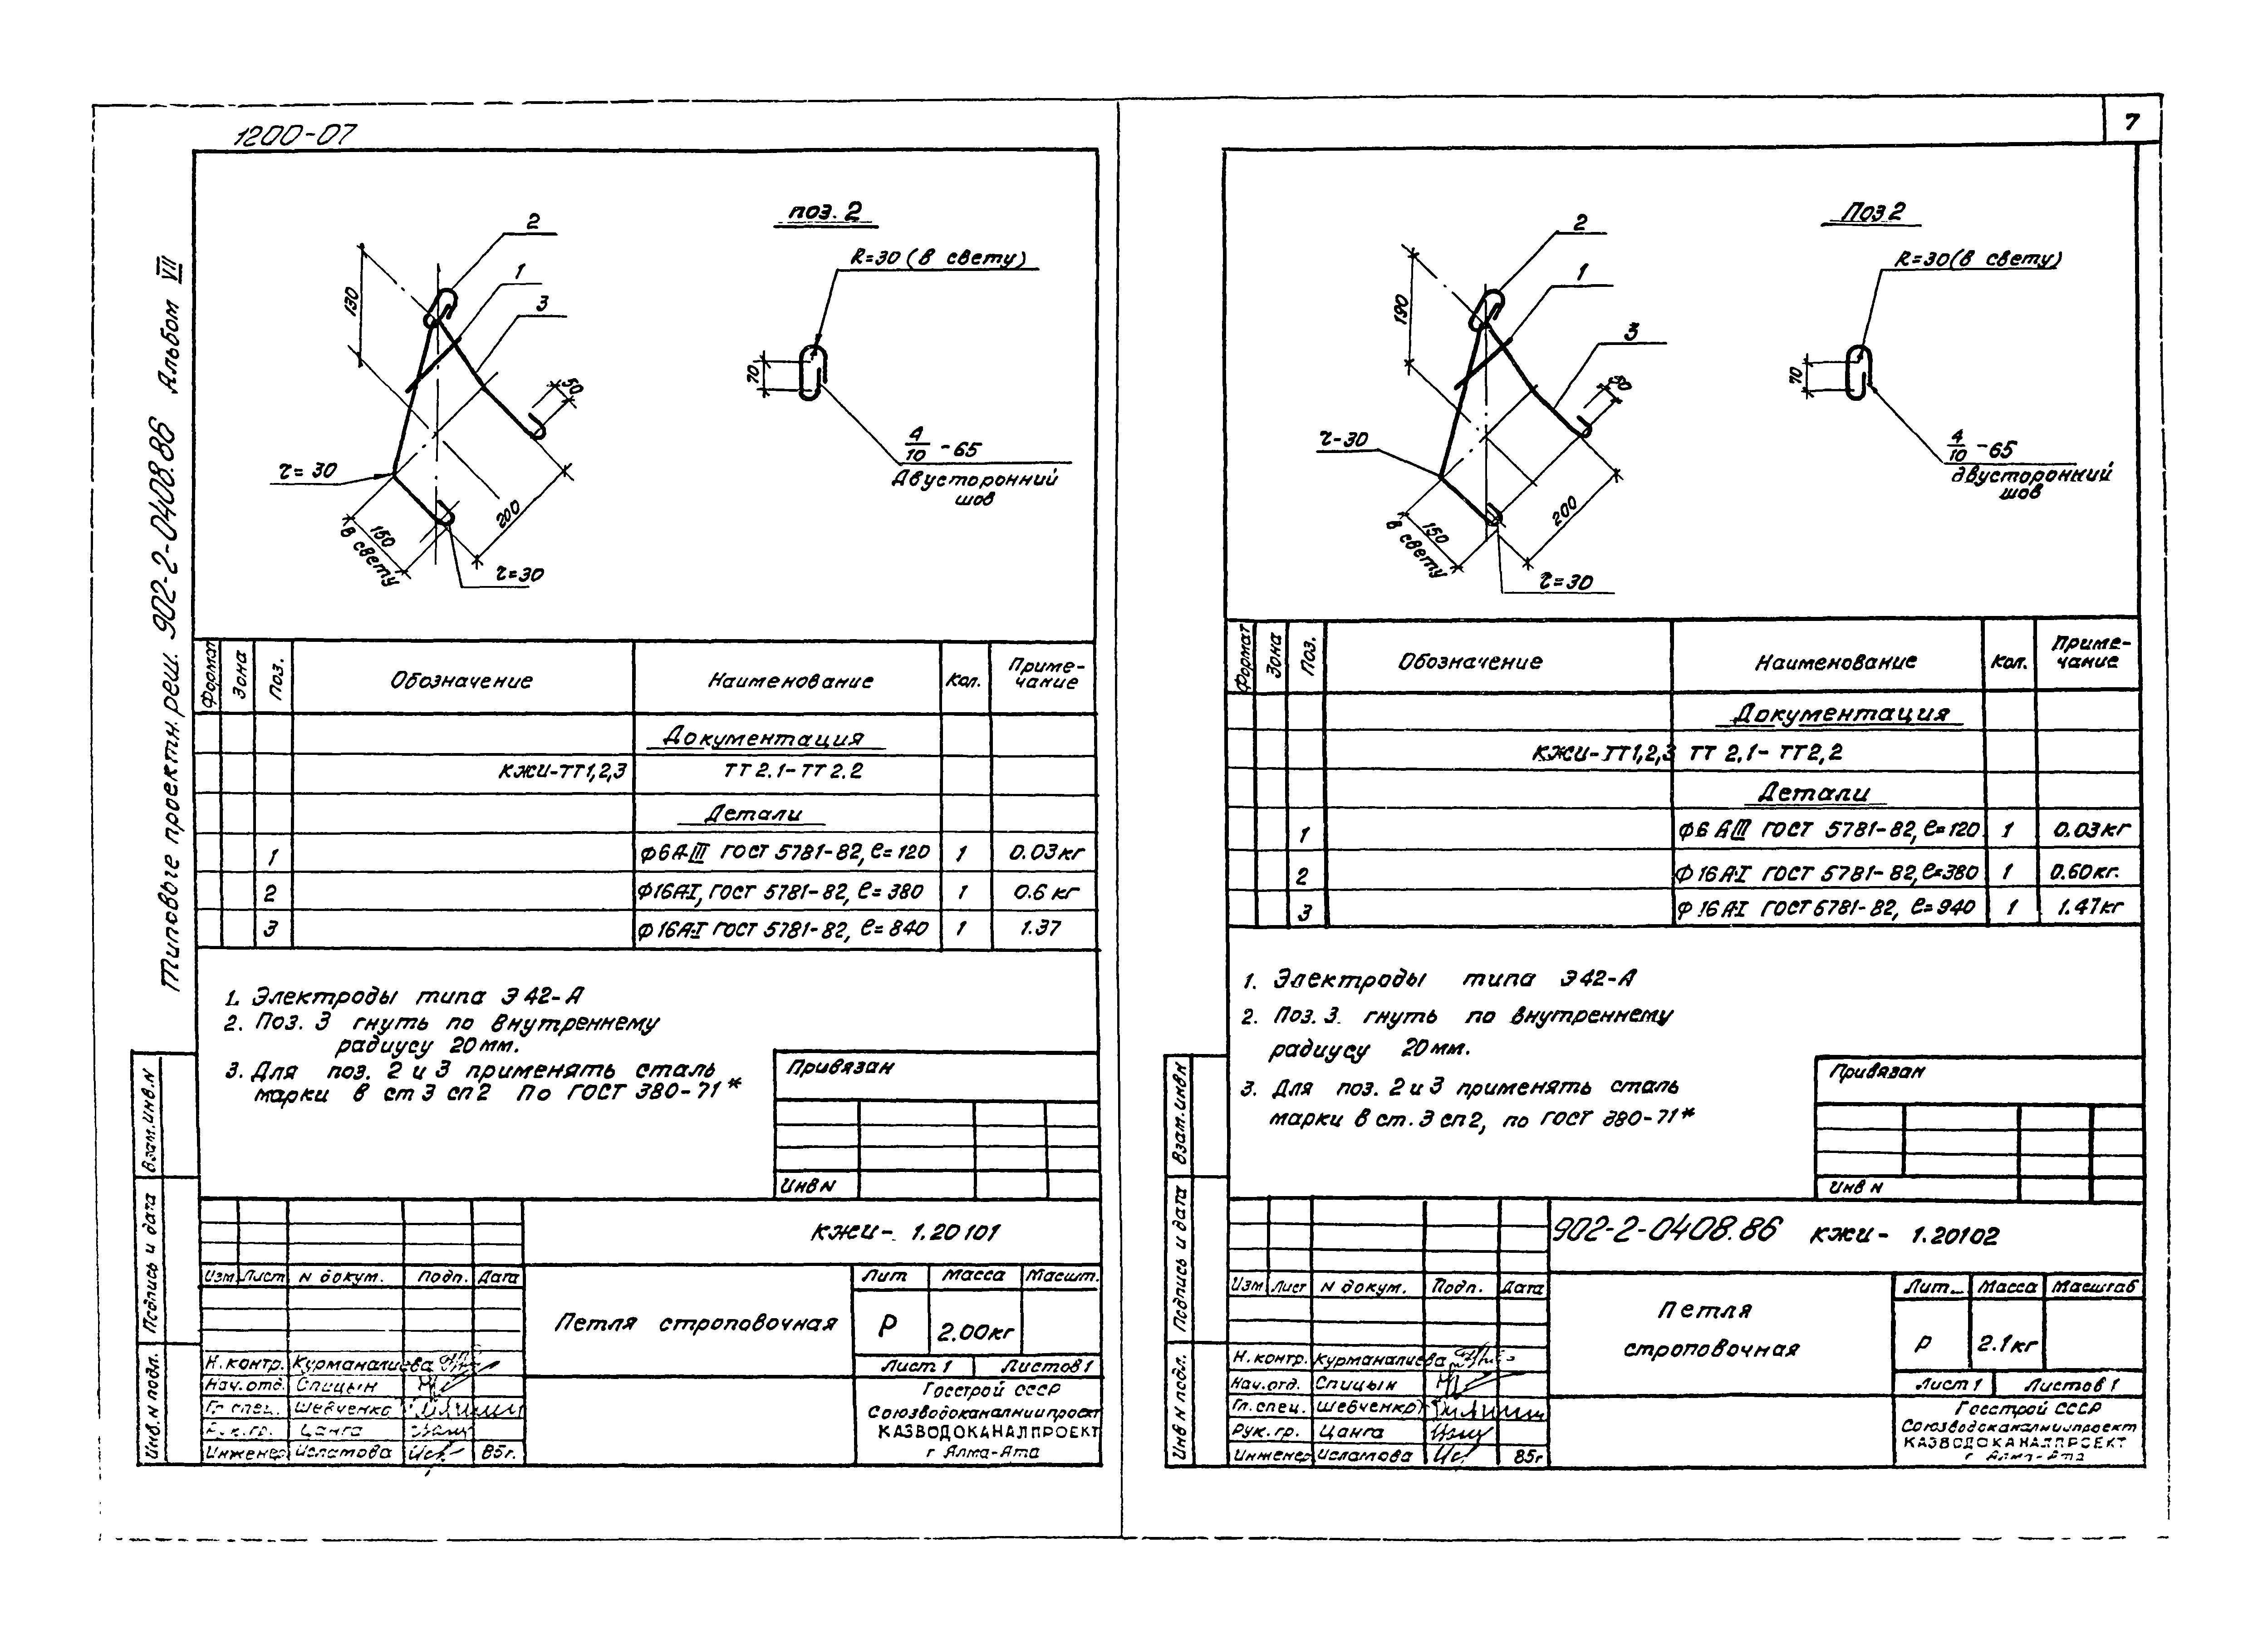 1200-07
7
Типовые проектн. реш. 902-2-0408.86 Альбом VII
2
1
3
130
50
r=30
200
150
в свету
r=30
поз. 2
R=30 (в свету)
70
4/10 -65
Двусторонний
шов
Формат
Зона
Поз.
Обозначение
Наименование
Кол.
Приме-
чание
Документация
КЖИ-ТТ1,2,3 ТТ 2.1- ТТ 2.2
Детали
1 ф6А-III ГОСТ 5781-82, ℓ=120 1 0.03кг
2 ф16А-I, ГОСТ 5781-82, ℓ=380 1 0.6 кг
3 ф16А-I ГОСТ 5781-82, ℓ=840 1 1.37
1. Электроды типа Э42-А
2. Поз. 3 гнуть по внутреннему
радиусу 20мм.
3. Для поз. 2 и 3 применять сталь
марки в ст 3 сп2 по ГОСТ 380-71*
Привязан
Инв N
Взам.инв.N
Подпись и дата
Инв.N подл.
КЖИ- 1.20101
Изм. Лист N докум. Подп. Дата
Лит Масса Масшт.
Петля строповочная
Р 2.00кг
Лист 1 Листов 1
Н.контр. Курманалиева
Нач.отд. Спицын
Гл спец. Шевченко
Рук.гр. Цанга
Инженер Исламова 85г.
Госстрой СССР
Союзводоканалниипроект
КАЗВОДОКАНАЛПРОЕКТ
г Алма-Ата
2
1
3
190
50
r-30
200
150
в свету
r=30
Поз 2
R=30(в свету)
70
4/10 -65
двусторонний
шов
Формат
Зона
Поз.
Обозначение
Наименование
Кол.
Приме-
чание
Документация
КЖИ-ТТ1,2,3 ТТ 2.1- ТТ2,2
Детали
1 ф6 АIII ГОСТ 5781-82, ℓ=120 1 0.03кг
2 ф16А-I ГОСТ 5781-82, ℓ=380 1 0.60кг.
3 ф16 А-I ГОСТ 5781-82, ℓ=940 1 1.47кг
1. Электроды типа Э42-А
2. Поз. 3. гнуть по внутреннему
радиусу 20мм.
3. Для поз. 2 и 3 применять сталь
марки в ст. 3 сп2, по ГОСТ 380-71*
Привязан
Инв N
Взам.инв N
Подпись и дата
Инв N подл.
902-2-0408.86 КЖИ- 1.20102
Изм Лист N докум. Подп. Дата
Лит. Масса Масштаб
Петля
строповочная
Р 2.1кг
Лист 1 Листов 1
Н.контр. Курманалиева
Нач.отд. Спицын
Гл.спец. Шевченко
Рук.гр. Цанга
Инженер Исламова 85г
Госстрой СССР
Союзводоканалниипроект
КАЗВОДОКАНАЛПРОЕКТ
г Алма-Ата